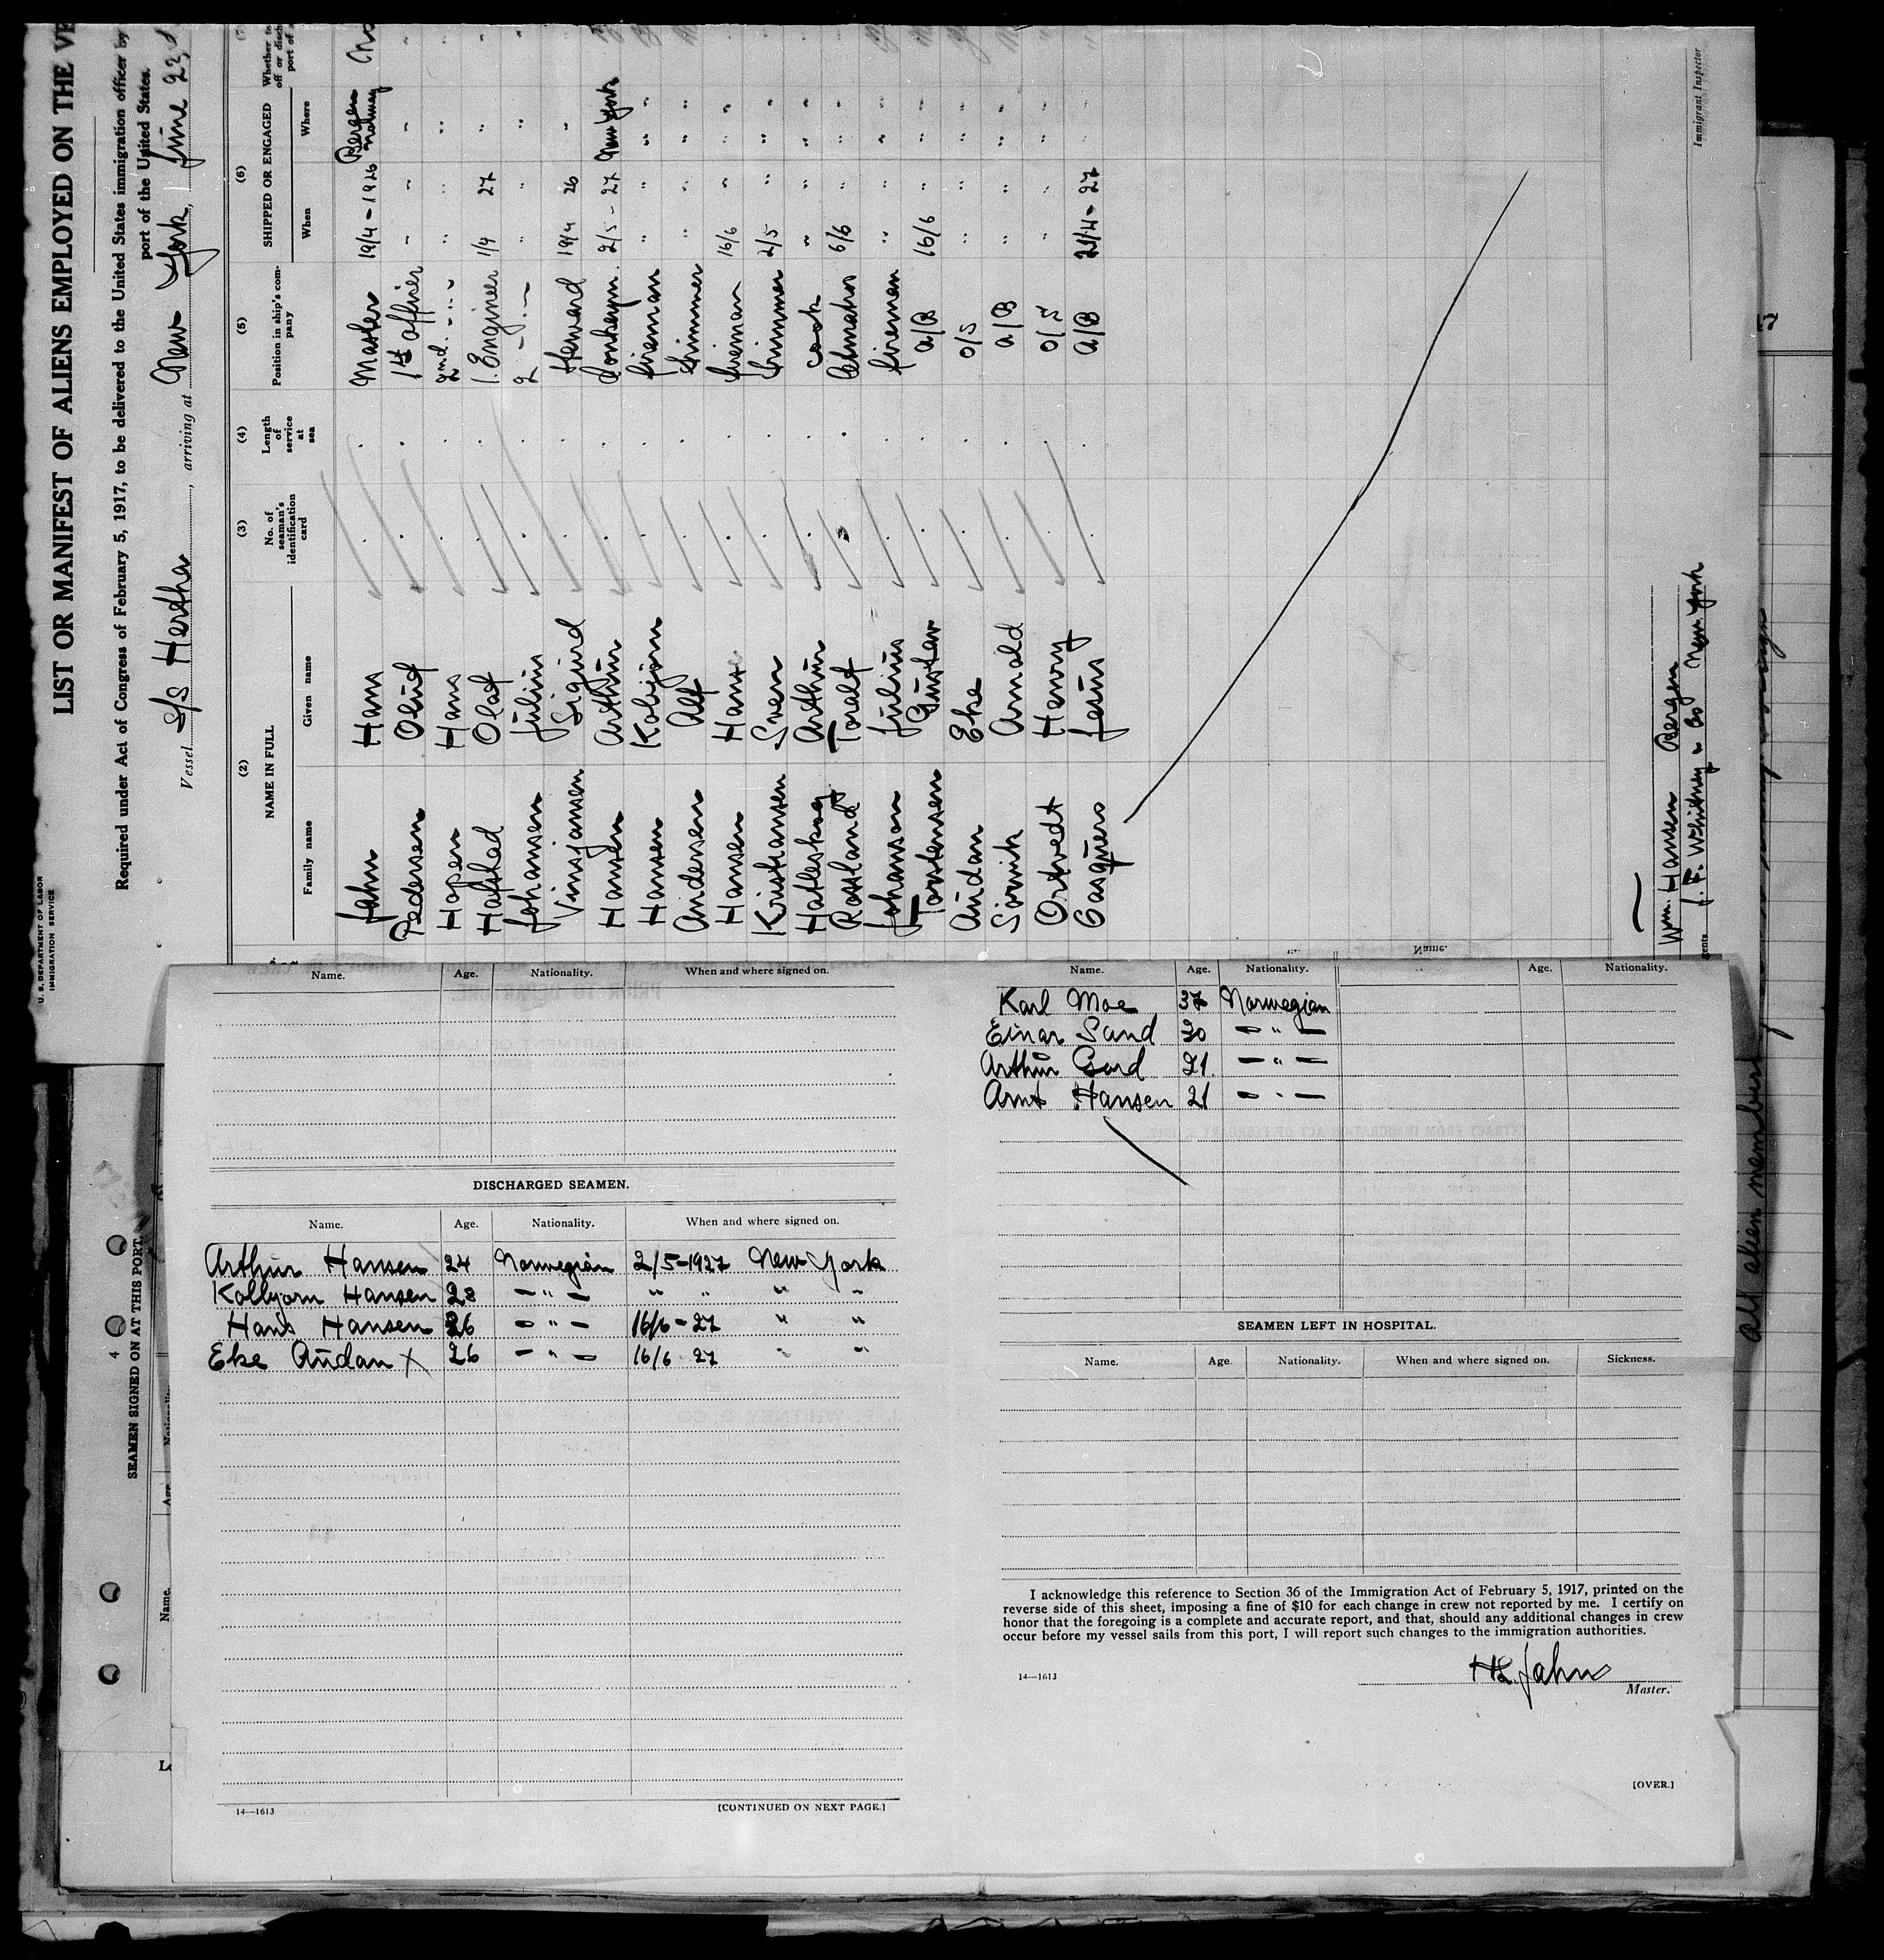 U. S. DEPARTMENT OF LABOR
IMMIGRATION SERVICE
LIST OR MANIFEST OF ALIENS EMPLOYED ON THE VE
Required under Act of Congress of February 5, 1917, to be delivered to the United States immigration officer by
port of the United States.
Vessel S/S Hertha, arriving at New York, June 23d
(2) (3) (4) (5) (6)
NAME IN FULL No. of seaman's identification card Length of service at sea Position in ship's company SHIPPED OR ENGAGED Whether to
off or disch
port of
Family name Given name When Where
Jahn Hans Master 19/4-1926 Bergen Norway
Pedersen Oluf 1st officer " "
Hopen Hans 2nd -"- " "
Hafstad Olaf 1. Engineer 1/9 27 "
Johansen Julius 2 -"- " " "
Vinsjansen Sigurd Steward 19/4 26 "
Hansen Arthur Donkeym. 2/5-27 New York
Hansen Kolbjorn fireman " " " "
Andersen Alf trimmer " " " "
Hansen Hans fireman 16/6 " " "
Kristiansen Sven trimmer 2/5 " " "
Hatleskog Arthur cook " " " "
Rossland Toralf 6/6 " " "
Johanson Julius fireman " " " "
Torstensen Gustav A/B 16/6 " " "
Audan Eke O/S " " " "
Arnold A/B " " " "
Ortvedt Henry O/S " " " "
A/B 21/4-27
Immigrant Inspector
Wm. Hansen Bergen
J. F. Whitney & Co New York
ents
Name. Age. Nationality. When and where signed on.
DISCHARGED SEAMEN.
Name. Age. Nationality. When and where signed on.
Arthur Hansen 24 Norwegian 2/5-1927 New York
Kolbjorn Hansen 28 -"- " " " "
Hans Hansen 26 -"- 16/6-27 " "
Eke Audan X 26 -"- 16/6 27 " "
14—1613 [CONTINUED ON NEXT PAGE.]
Name. Age. Nationality. Name. Age. Nationality.
Karl Moe 37 Norwegian
Einar Sand 20 -"-
Arthur 21 -"-
Arnt Hansen 21 -"-
SEAMEN LEFT IN HOSPITAL.
Name. Age. Nationality. When and where signed on. Sickness.
I acknowledge this reference to Section 36 of the Immigration Act of February 5, 1917, printed on the
reverse side of this sheet, imposing a fine of $10 for each change in crew not reported by me. I certify on
honor that the foregoing is a complete and accurate report, and that, should any additional changes in crew
occur before my vessel sails from this port, I will report such changes to the immigration authorities.
14—1613
Jahn
Master.
[OVER.]
4
SEAMEN SIGNED ON AT THIS PORT.
Name. Age. Nationality.
all alien members